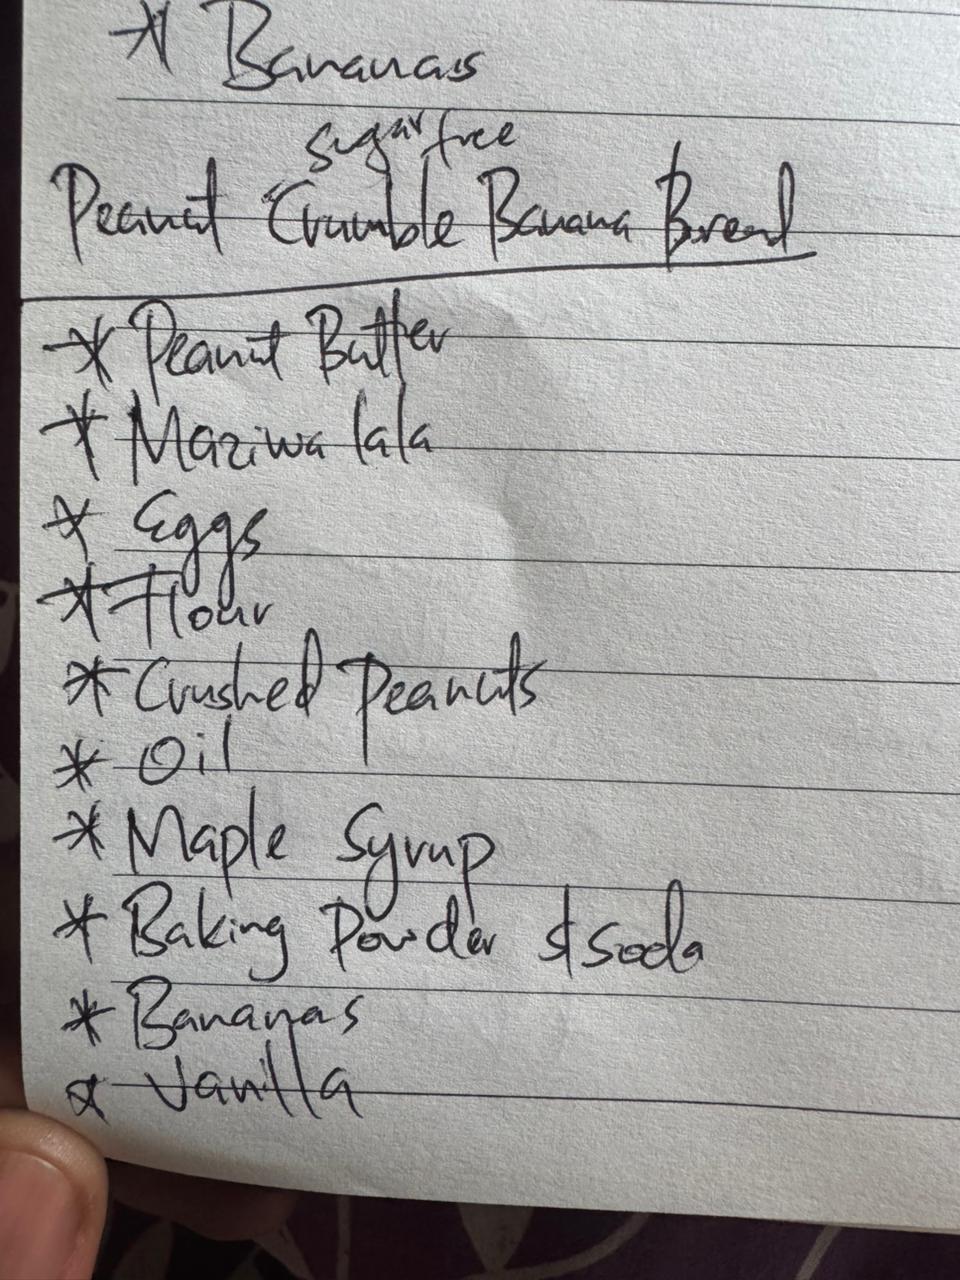 * Bananas
sugar free
Peanut Crumble Banana Bread
* Peanut Butter
* Maziwa lala
* Eggs
* Flour
* Crushed Peanuts
* Oil
* Maple Syrup
* Baking Powder & Soda
* Bananas
* Vanilla